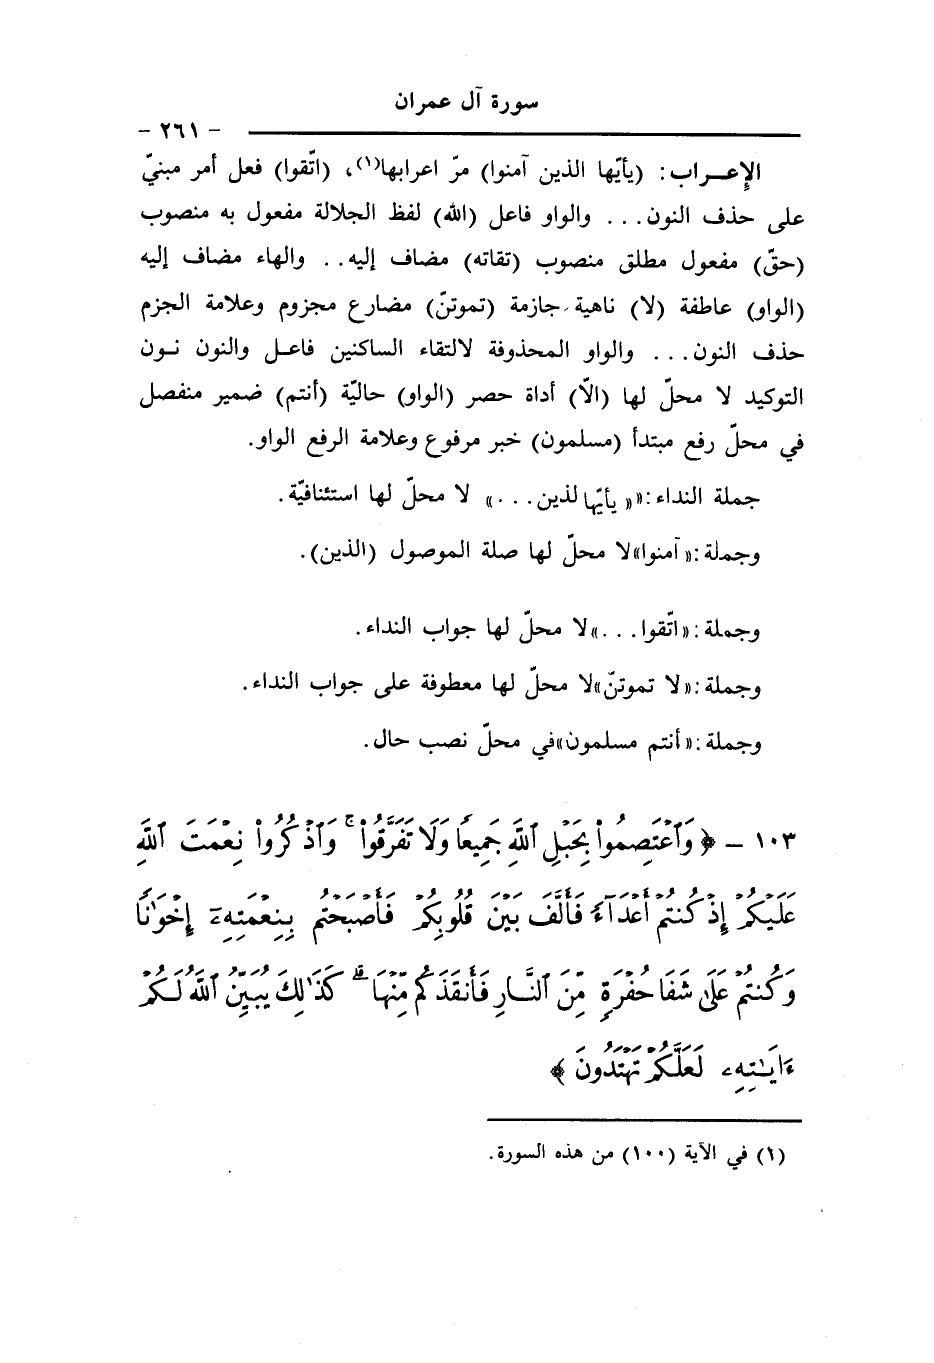 سورة آل عمران
- ٢٦١ -
الإعـــراب: (يأيّها الذين آمنوا) مرّ اعرابها(١)، (اتّقوا) فعل أمر مبنيّ
على حذف النون... والواو فاعل (الله) لفظ الجلالة مفعول به منصوب
(حقّ) مفعول مطلق منصوب (تقاته) مضاف إليه.. والهاء مضاف إليه
(الواو) عاطفة (لا) ناهية جازمة (تموتنّ) مضارع مجزوم وعلامة الجزم
حذف النون... والواو المحذوفة لالتقاء الساكنين فاعـل والنون نـون
التوكيد لا محلّ لها (الّا) أداة حصر (الواو) حاليّة (أنتم) ضمير منفصل
في محلّ رفع مبتدأ (مسلمون) خبر مرفوع وعلامة الرفع الواو.
جملة النداء:«« يأيّها لذين...» لا محلّ لها استئنافيّة.
وجملة:«آمنوا»لا محلّ لها صلة الموصول (الذين).
وجملة:«اتّقوا...»لا محلّ لها جواب النداء.
وجملة:«لا تموتنّ»لا محلّ لها معطوفة على جواب النداء.
وجملة:«أنتم مسلمون»في محلّ نصب حال.
١٠٣ - ﴿ وَٱعْتَصِمُوا۟ بِحَبْلِ ٱللَّهِ جَمِيعًا وَلَا تَفَرَّقُوا۟ ۚ وَٱذْكُرُوا۟ نِعْمَتَ ٱللَّهِ
عَلَيْكُمْ إِذْ كُنتُمْ أَعْدَآءً فَأَلَّفَ بَيْنَ قُلُوبِكُمْ فَأَصْبَحْتُم بِنِعْمَتِهِۦٓ إِخْوَٰنًا
وَكُنتُمْ عَلَىٰ شَفَا حُفْرَةٍ مِّنَ ٱلنَّارِ فَأَنقَذَكُم مِّنْهَا ۗ كَذَٰلِكَ يُبَيِّنُ ٱللَّهُ لَكُمْ
ءَايَـٰتِهِۦ لَعَلَّكُمْ تَهْتَدُونَ ﴾
(١) في الآية (١٠٠) من هذه السورة.